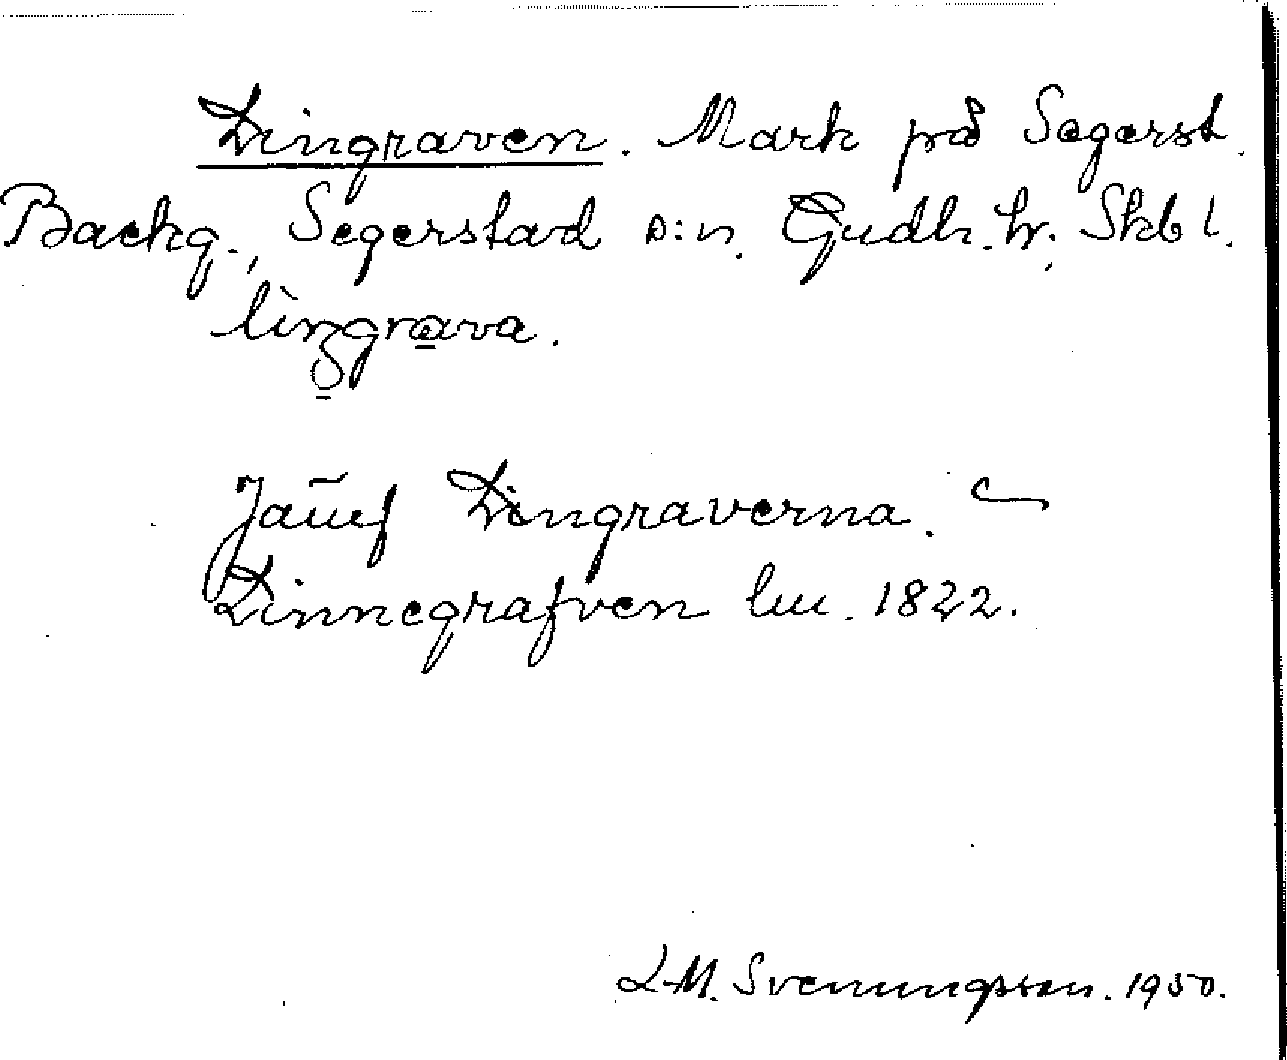 Lingraven. Mark på Segerst.
Backg., Segerstad s:n. Gudh. hr. Skbl.
lingrava.
Jämf Lingraverna.
Linnegrafven lm. 1822.
L.M. Svenungsson. 1950.